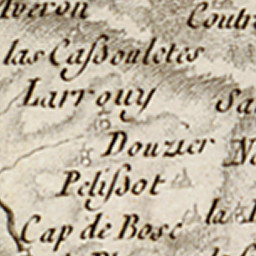 Averon
Coutr
las Caßouletes
Larrouy
Sa
Douzier
Pelißot
la
Cap de Bosc